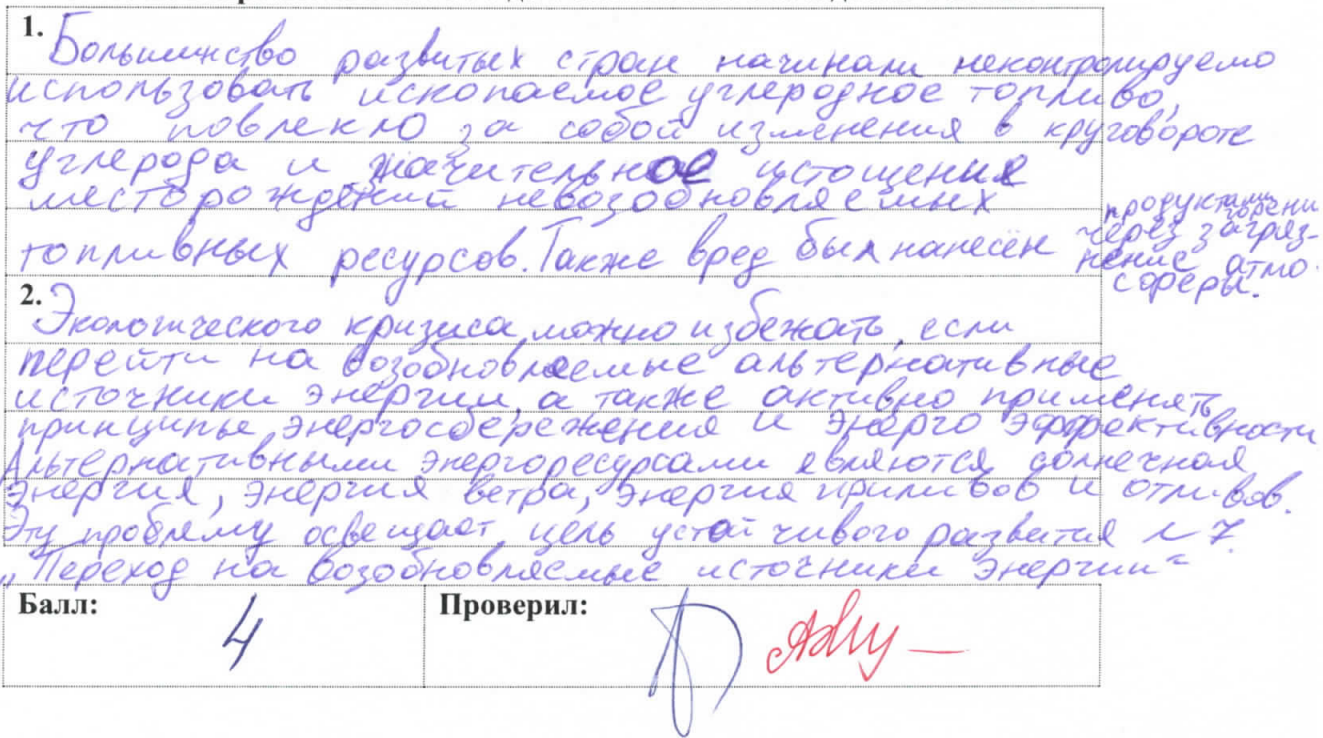 1.
Большинство развитых стран начинали неконтролируемо
использовать ископаемое углеродное топливо,
что повлекло за собой изменения в круговороте
углерода и значительное истощения
месторождений невозобновляемых
топливных ресурсов. Также вред был нанесён продуктами горени
через загряз-
нение атмо-
сферы.
2.
Экологического кризиса можно избежать, если
перейти на возобновляемые альтернативные
источники энергии, а также активно применять
принципы энергосбережения и энергоэффективности
Альтернативными энергоресурсами являются солнечная
энергия, энергия ветра, энергия приливов и отливов.
Эту проблему освещает цель устойчивого развития №7.
„Переход на возобновляемые источники энергии“
Балл: 4 Проверил: